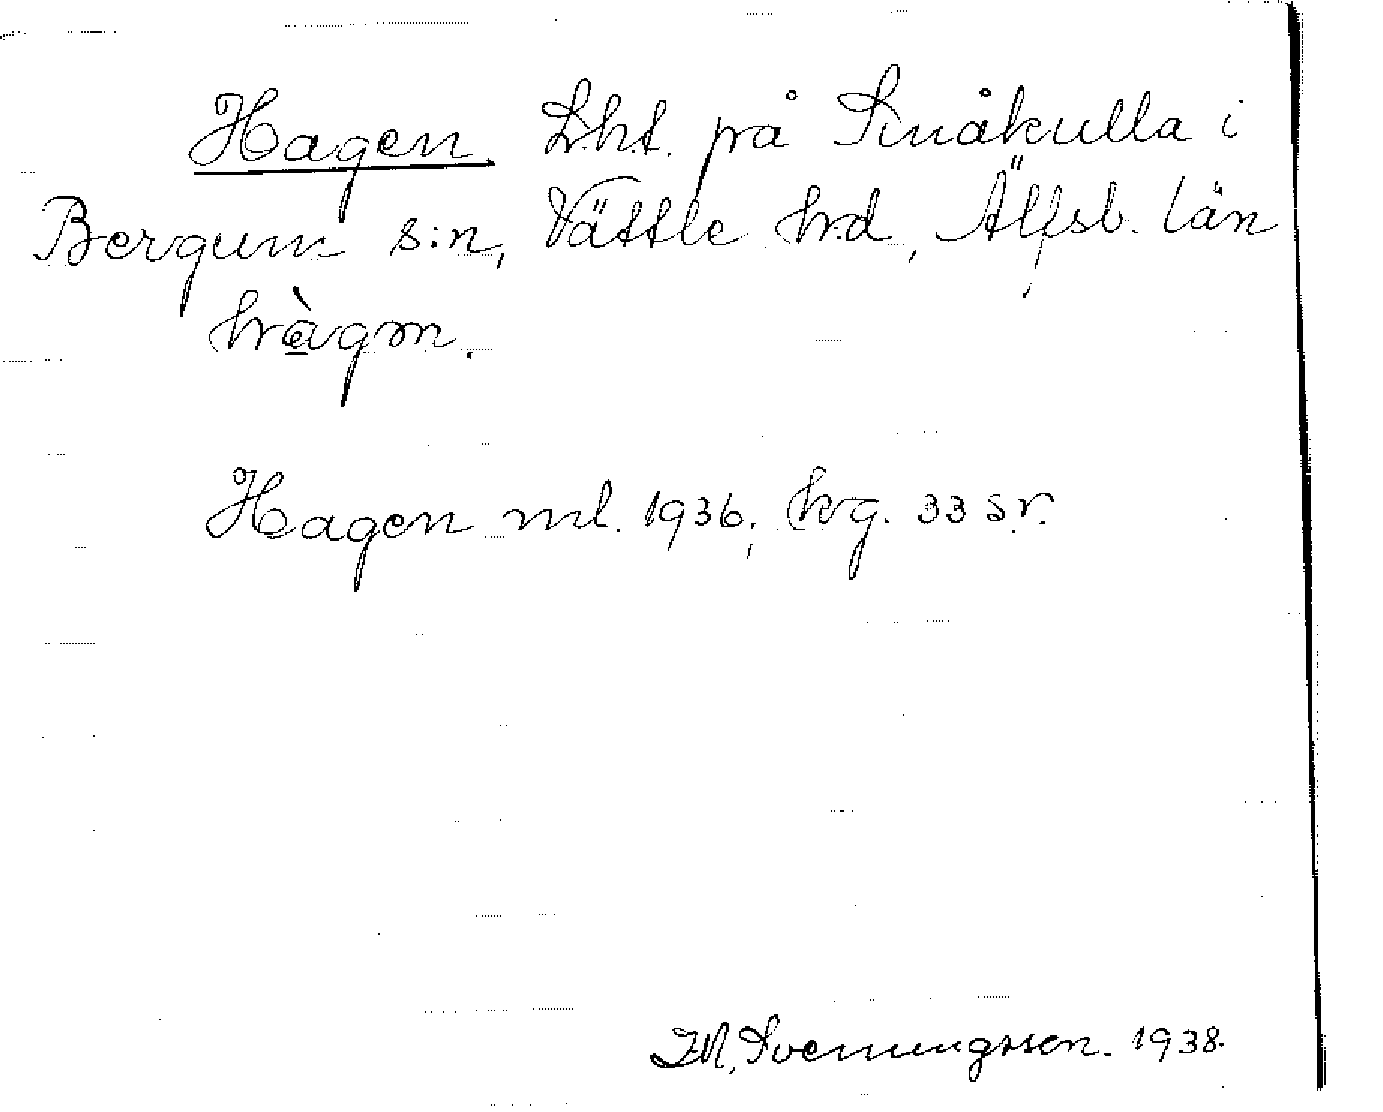 Hagen. Lht. på Småkulla i
Bergum s:n, Vättle hd, Älfsb. län
hàgɷn.
Hagen ml. 1936, krg. 33 sr.
Svenningsson. 1938.